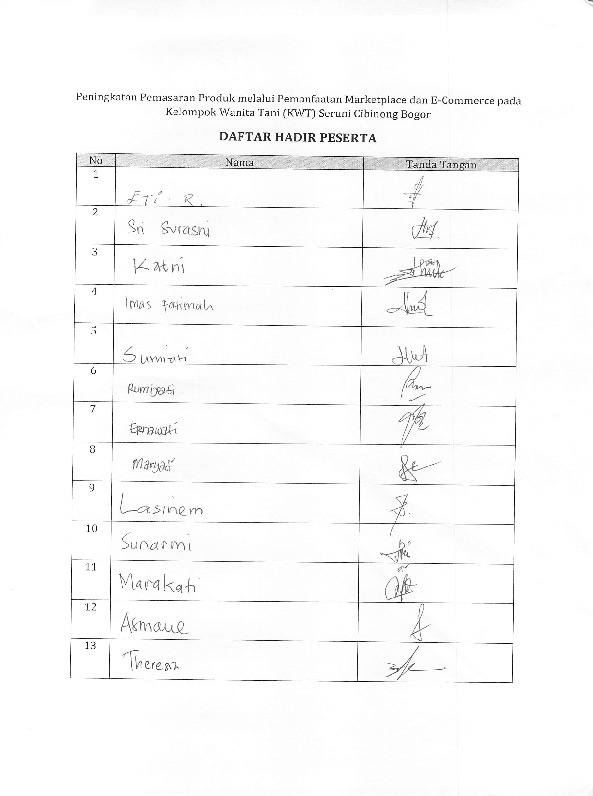 Peningkatan Pemasaran Produk melalui Pemanfaatan Marketplace dan E-Commerce pada
Kelompok Wanita Tani (KWT) Seruni Cibinong Bogor
DAFTAR HADIR PESERTA
No Nama Tanda Tangan
1 ETI R.
2 Sri Surasni
3 Katni
4 Imas Fatimah
5 Sumiati
6 Rumiyati
7 Ernawati
8 Maryati
9 Lasinem
10 Sunarmi
11 Marakati
12 Asmaue
13 Theresa